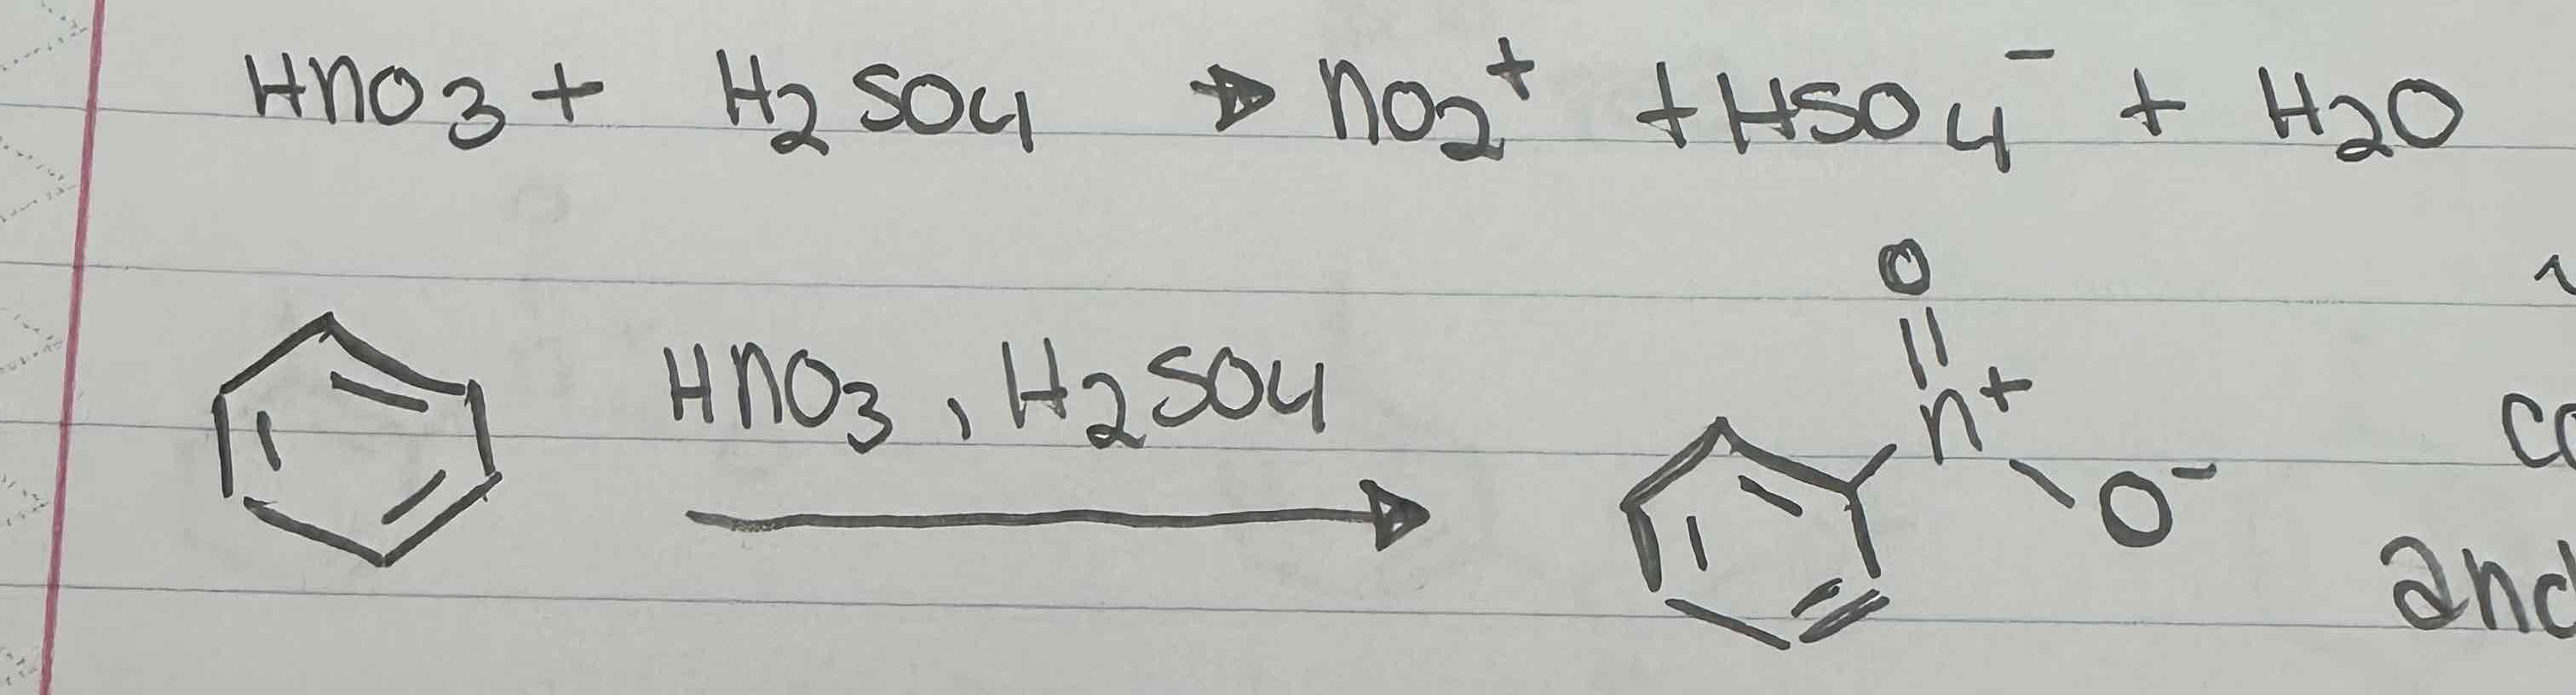 HnO3 + H2SO4 → nO2⁺ + HSO4⁻ + H2O
O
HnO3, H2SO4
n⁺
O⁻